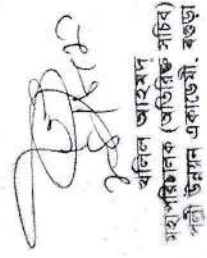 খলিল আহমদ
মহাপরিচালক (অতিরিক্ত সচিব)
পল্লী উন্নয়ন একাডেমী, বগুড়া